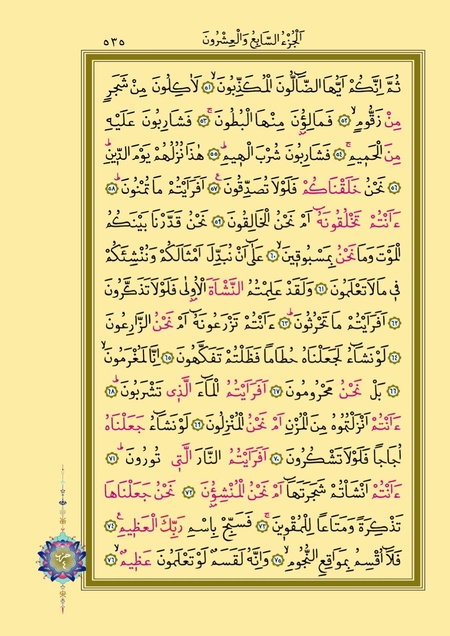 اَلْجُزْءُ السَّابِعُ وَالْعِشْرُونَ ٥٣٥
ثُمَّ اِنَّكُمْ اَيُّهَا الضَّٓالُّونَ الْمُكَذِّبُونَۙ ﴿٥١﴾ لَاٰكِلُونَ مِنْ شَجَرٍ
مِنْ زَقُّومٍۙ ﴿٥٢﴾ فَمَالِؤُ۫نَ مِنْهَا الْبُطُونَۚ ﴿٥٣﴾ فَشَارِبُونَ عَلَيْهِ
مِنَ الْحَم۪يمِۚ ﴿٥٤﴾ فَشَارِبُونَ شُرْبَ الْه۪يمِۜ ﴿٥٥﴾ هٰذَا نُزُلُهُمْ يَوْمَ الدّ۪ينِۜ
﴿٥٦﴾ نَحْنُ خَلَقْنَاكُمْ فَلَوْلَا تُصَدِّقُونَ ﴿٥٧﴾ اَفَرَاَيْتُمْ مَا تُمْنُونَۜ ﴿٥٨﴾
ءَاَنْتُمْ تَخْلُقُونَهُٓ اَمْ نَحْنُ الْخَالِقُونَ ﴿٥٩﴾ نَحْنُ قَدَّرْنَا بَيْنَكُمُ
الْمَوْتَ وَمَا نَحْنُ بِمَسْبُوق۪ينَۙ ﴿٦٠﴾ عَلٰٓى اَنْ نُبَدِّلَ اَمْثَالَكُمْ وَنُنْشِئَكُمْ
ف۪ي مَا لَا تَعْلَمُونَ ﴿٦١﴾ وَلَقَدْ عَلِمْتُمُ النَّشْاَةَ الْاُو۫لٰى فَلَوْلَا تَذَكَّرُونَ
﴿٦٢﴾ اَفَرَاَيْتُمْ مَا تَحْرُثُونَۜ ﴿٦٣﴾ ءَاَنْتُمْ تَزْرَعُونَهُٓ اَمْ نَحْنُ الزَّارِعُونَ
﴿٦٤﴾ لَوْ نَشَٓاءُ لَجَعَلْنَاهُ حُطَامًا فَظَلْتُمْ تَفَكَّهُونَ ﴿٦٥﴾ اِنَّا لَمُغْرَمُونَۙ
﴿٦٦﴾ بَلْ نَحْنُ مَحْرُومُونَ ﴿٦٧﴾ اَفَرَاَيْتُمُ الْمَٓاءَ الَّذ۪ي تَشْرَبُونَۜ ﴿٦٨﴾
ءَاَنْتُمْ اَنْزَلْتُمُوهُ مِنَ الْمُزْنِ اَمْ نَحْنُ الْمُنْزِلُونَ ﴿٦٩﴾ لَوْ نَشَٓاءُ جَعَلْنَاهُ
اُجَاجًا فَلَوْلَا تَشْكُرُونَ ﴿٧٠﴾ اَفَرَاَيْتُمُ النَّارَ الَّت۪ي تُورُونَۜ ﴿٧١﴾
ءَاَنْتُمْ اَنْشَاْتُمْ شَجَرَتَهَٓا اَمْ نَحْنُ الْمُنْشِؤُ۫نَ ﴿٧٢﴾ نَحْنُ جَعَلْنَاهَا
تَذْكِرَةً وَمَتَاعًا لِلْمُقْو۪ينَۚ ﴿٧٣﴾ فَسَبِّحْ بِاسْمِ رَبِّكَ الْعَظ۪يمِ ﴿٧٤﴾
فَلَٓا اُقْسِمُ بِمَوَاقِعِ النُّجُومِۙ ﴿٧٥﴾ وَاِنَّهُ لَقَسَمٌ لَوْ تَعْلَمُونَ عَظ۪يمٌۙ ﴿٧٦﴾